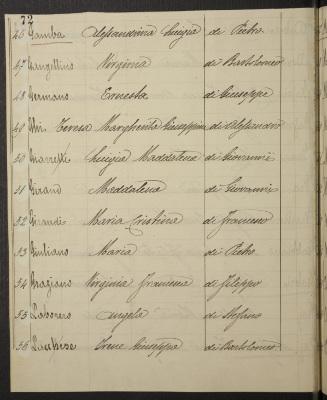 72
46 Gamba Alessandrina Luigia di Pietro
47 Gangellino Virginia di Bartolomeo
48 Germano Ernesta di Giuseppe
49 Ghi Teresa Margherita Giuseppina di Alessandro
50 Luigia Maddalena di Giovanni
51 Girard Maddalena di Giovanni
52 Giraudi Maria Cristina di Francesco
53 Giuliano Maria di Pietro
54 Gragiano Virginia Francesca di Filippo
55 Laborero Angela di Stefano
56 Irene Giuseppa di Bartolomeo